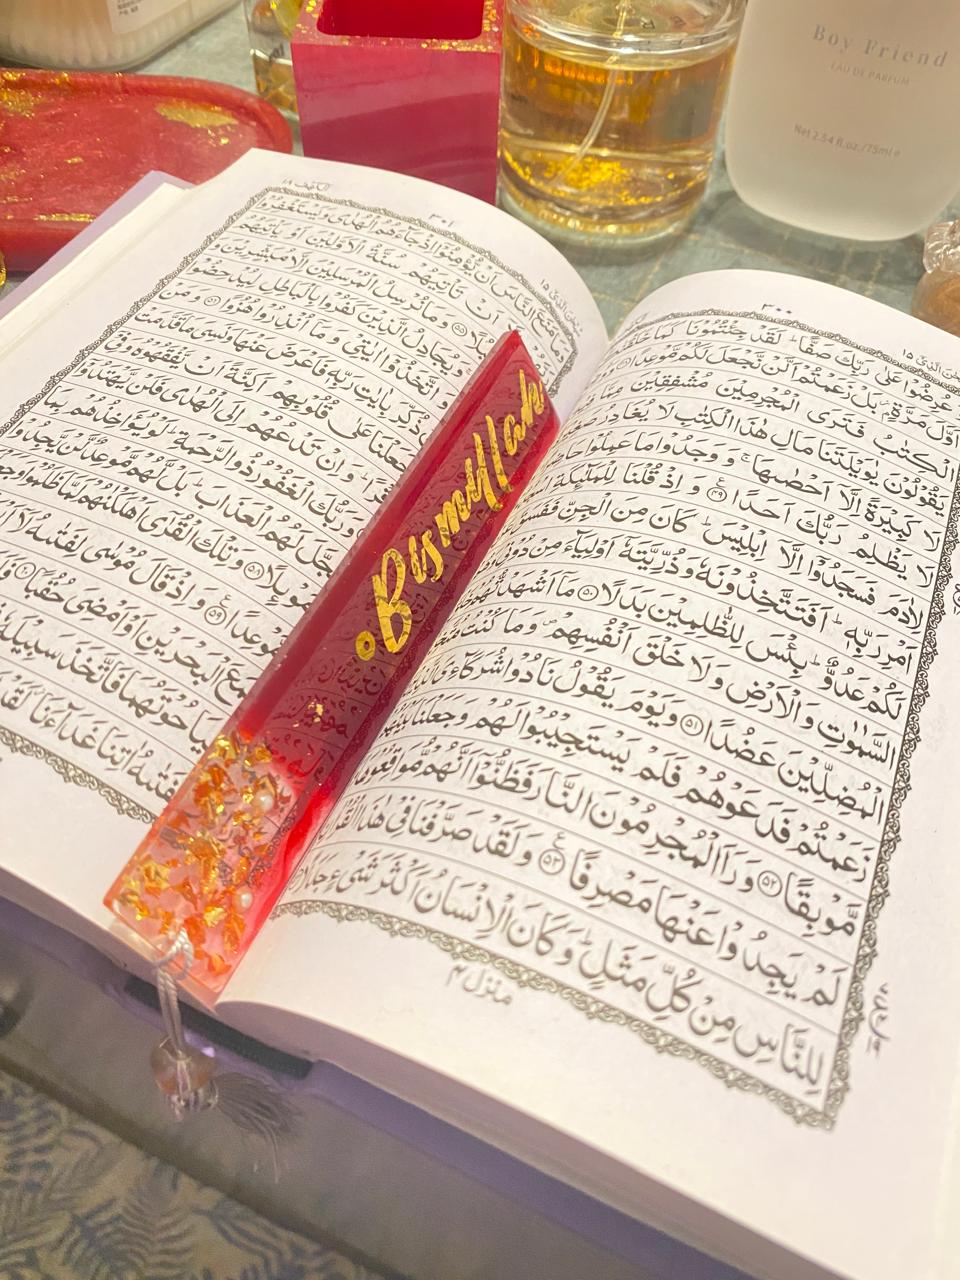 Boy Friend
EAU DE PARFUM
Net 2.54 fl.oz./75ml e
Bismillah
٣٠٠
وَعُرِضُوْا عَلٰى رَبِّكَ صَفًّا لَقَدْ جِئْتُمُوْنَا كَمَا
اَوَّلَ مَرَّةٍ بَلْ زَعَمْتُمْ اَلَّنْ نَّجْعَلَ لَكُمْ مَّوْعِدًا
الْكِتٰبُ فَتَرَى الْمُجْرِمِيْنَ مُشْفِقِيْنَ مِمَّا
يَقُوْلُوْنَ يٰوَيْلَتَنَا مَالِ هٰذَا الْكِتٰبِ لَا يُغَادِرُ
لَا كَبِيْرَةً اِلَّا اَحْصٰىهَا وَوَجَدُوْا مَا عَمِلُوْا
لَا يَظْلِمُ رَبُّكَ اَحَدًا ٤٩ وَاِذْ قُلْنَا لِلْمَلٰٓئِكَةِ
لِاٰدَمَ فَسَجَدُوْٓا اِلَّآ اِبْلِيْسَ كَانَ مِنَ الْجِنِّ
اَمْرِ رَبِّهٖ اَفَتَتَّخِذُوْنَهٗ وَذُرِّيَّتَهٗٓ اَوْلِيَآءَ مِنْ
لَكُمْ عَدُوٌّ بِئْسَ لِلظّٰلِمِيْنَ بَدَلًا ٥٠ مَآ اَشْهَدْتُّهُمْ
السَّمٰوٰتِ وَالْاَرْضِ وَلَا خَلْقَ اَنْفُسِهِمْ وَمَا كُنْتُ
الْمُضِلِّيْنَ عَضُدًا ٥١ وَيَوْمَ يَقُوْلُ نَادُوْا شُرَكَآءِيَ
زَعَمْتُمْ فَدَعَوْهُمْ فَلَمْ يَسْتَجِيْبُوْا لَهُمْ وَجَعَلْنَا
مَّوْبِقًا ٥٢ وَرَاَ الْمُجْرِمُوْنَ النَّارَ فَظَنُّوْٓا اَنَّهُمْ مُّوَاقِعُوْهَا
لَمْ يَجِدُوْا عَنْهَا مَصْرِفًا ٥٣ وَلَقَدْ صَرَّفْنَا فِيْ هٰذَا
لِلنَّاسِ مِنْ كُلِّ مَثَلٍ وَكَانَ الْاِنْسَانُ اَكْثَرَ شَيْءٍ جَدَلًا
منزل ٤
الكهف ١٨
٣٠١
وَمَا مَنَعَ النَّاسَ اَنْ يُّؤْمِنُوْٓا اِذْ جَآءَهُمُ الْهُدٰى وَيَسْتَغْفِرُوْا
اَنْ تَاْتِيَهُمْ سُنَّةُ الْاَوَّلِيْنَ اَوْ يَاْتِيَهُمُ
٥٥ وَمَا نُرْسِلُ الْمُرْسَلِيْنَ اِلَّا مُبَشِّرِيْنَ
وَيُجَادِلُ الَّذِيْنَ كَفَرُوْا بِالْبَاطِلِ لِيُدْحِضُوْا
وَاتَّخَذُوْٓا اٰيٰتِيْ وَمَآ اُنْذِرُوْا هُزُوًا ٥٦ وَمَنْ
ذُكِّرَ بِاٰيٰتِ رَبِّهٖ فَاَعْرَضَ عَنْهَا وَنَسِيَ مَا قَدَّمَتْ
جَعَلْنَا عَلٰى قُلُوْبِهِمْ اَكِنَّةً اَنْ يَّفْقَهُوْهُ وَفِيْٓ
وَاِنْ تَدْعُهُمْ اِلَى الْهُدٰى فَلَنْ يَّهْتَدُوْٓا
وَرَبُّكَ الْغَفُوْرُ ذُو الرَّحْمَةِ لَوْ يُؤَاخِذُهُمْ بِمَا
لَعَجَّلَ لَهُمُ الْعَذَابَ بَلْ لَّهُمْ مَّوْعِدٌ لَّنْ يَّجِدُوْا
مَوْئِلًا ٥٨ وَتِلْكَ الْقُرٰٓى اَهْلَكْنٰهُمْ لَمَّا ظَلَمُوْا
مَّوْعِدًا ٥٩ وَاِذْ قَالَ مُوْسٰى لِفَتٰىهُ لَآ
الْبَحْرَيْنِ اَوْ اَمْضِيَ حُقُبًا ٦٠
حُوْتَهُمَا فَاتَّخَذَ سَبِيْلَهٗ
لِفَتٰىهُ اٰتِنَا غَدَآءَنَا لَقَدْ